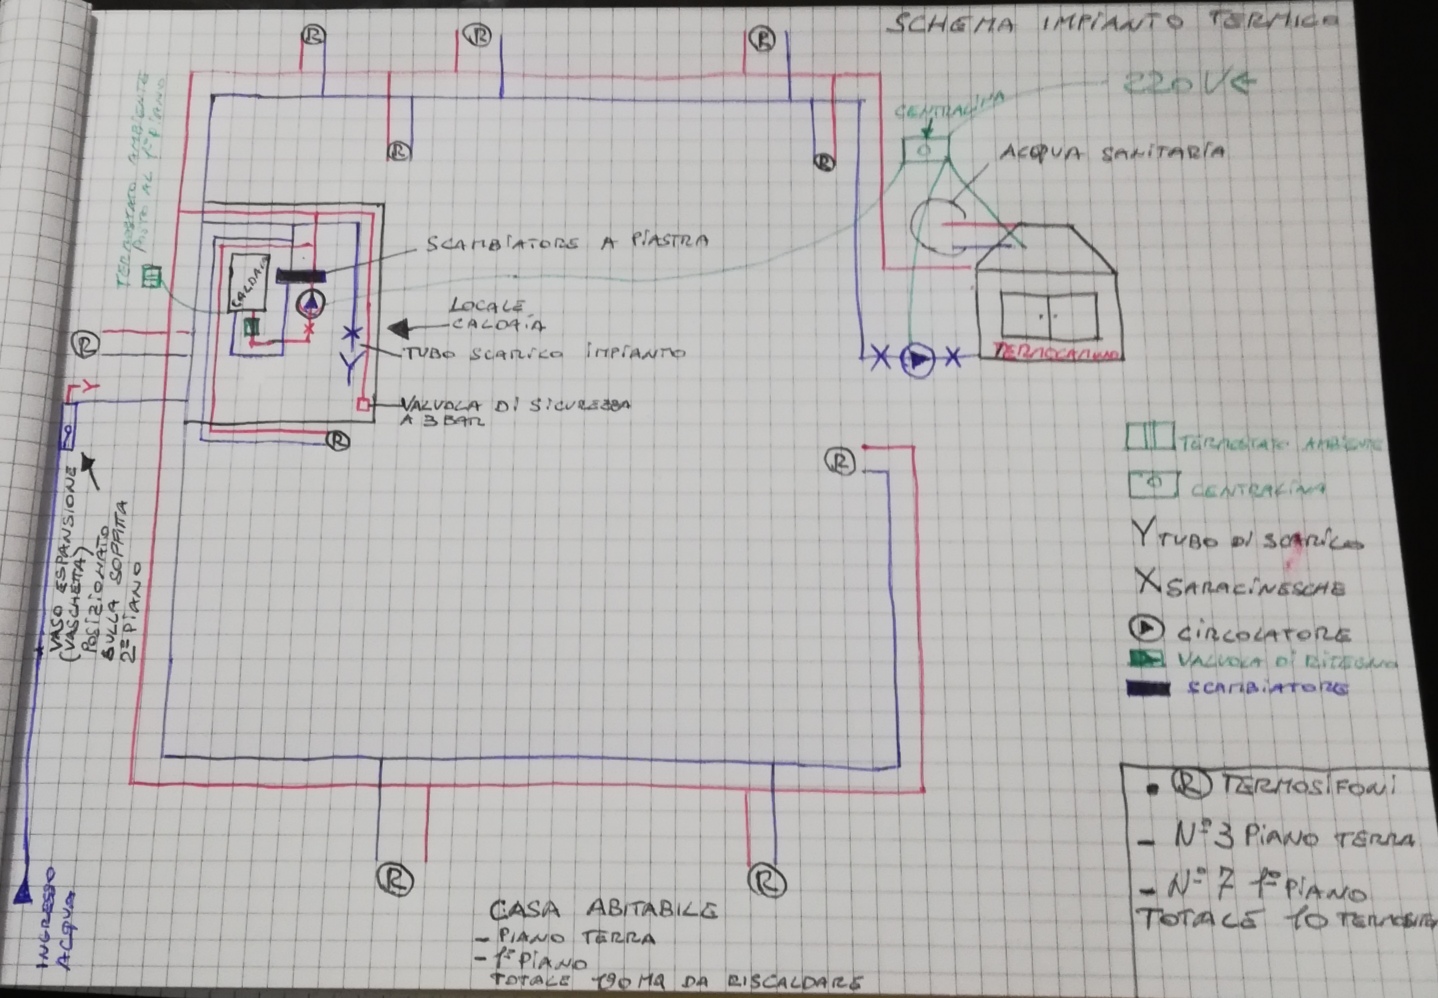 SCHEMA IMPIANTO TERMICO
R
R
R
220 V
CENTRALINA
ACQUA SANITARIA
R
R
TERMOSTATO AMBIENTE
POSTO AL 1º PIANO
SCAMBIATORE A PIASTRA
CALDAIA
LOCALE
CALDAIA
R
TUBO SCARICO IMPIANTO
TERMOCAMINO
VALVOLA DI SICUREZZA
A 3 BAR
R
R
VASO ESPANSIONE
(VASCHETTA)
POSIZIONATO
SULLA SOFFITTA
2º PIANO
TERMOSTATO AMBIENTE
CENTRALINA
Y TUBO DI SCARICO
X SARACINESCHE
CIRCOLATORE
VALVOLA DI RITEGNO
SCAMBIATORE
R
R
INGRESSO
ACQUA
CASA ABITABILE
- PIANO TERRA
- 1º PIANO
TOTALE 190 MQ DA RISCALDARE
• R TERMOSIFONI
- Nº 3 PIANO TERRA
- Nº 7 1º PIANO
TOTALE 10